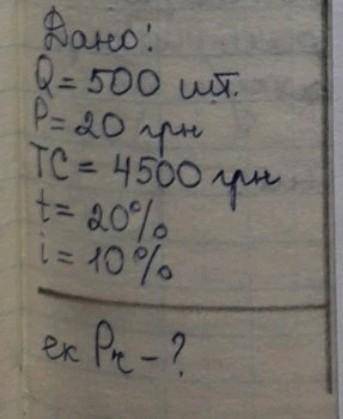 Дано:
Q = 500 шт.
P = 20 грн
TC = 4500 грн
t = 20%
i = 10%
ек Pr - ?